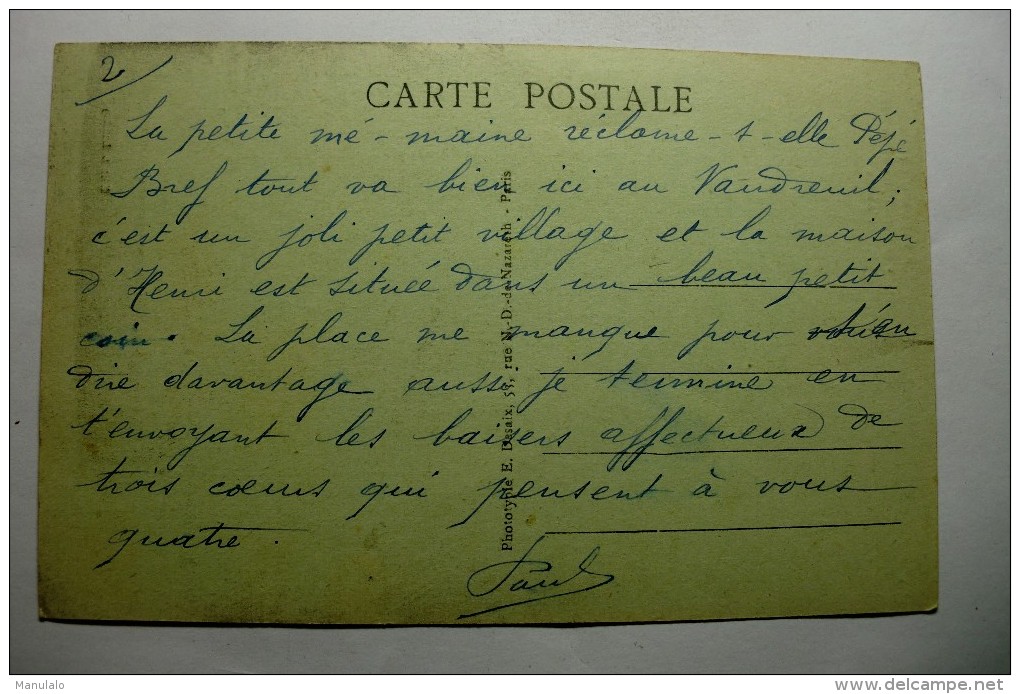 2
CARTE POSTALE
La petite mé-maine réclame-t-elle Pépé
Bref tout va bien ici au Vaudreuil,
c'est un joli petit village et la maison
d'Henri est située dans un beau petit
coin. La place me manque pour
dire davantage aussi je termine en
t'envoyant les baisers affectueux de
trois coeurs qui pensent à vous
quatre.
Paul
Phototypie E. Desaix, 55, rue N.-D.-de-Nazareth - Paris
Manulalo
www.delcampe.net